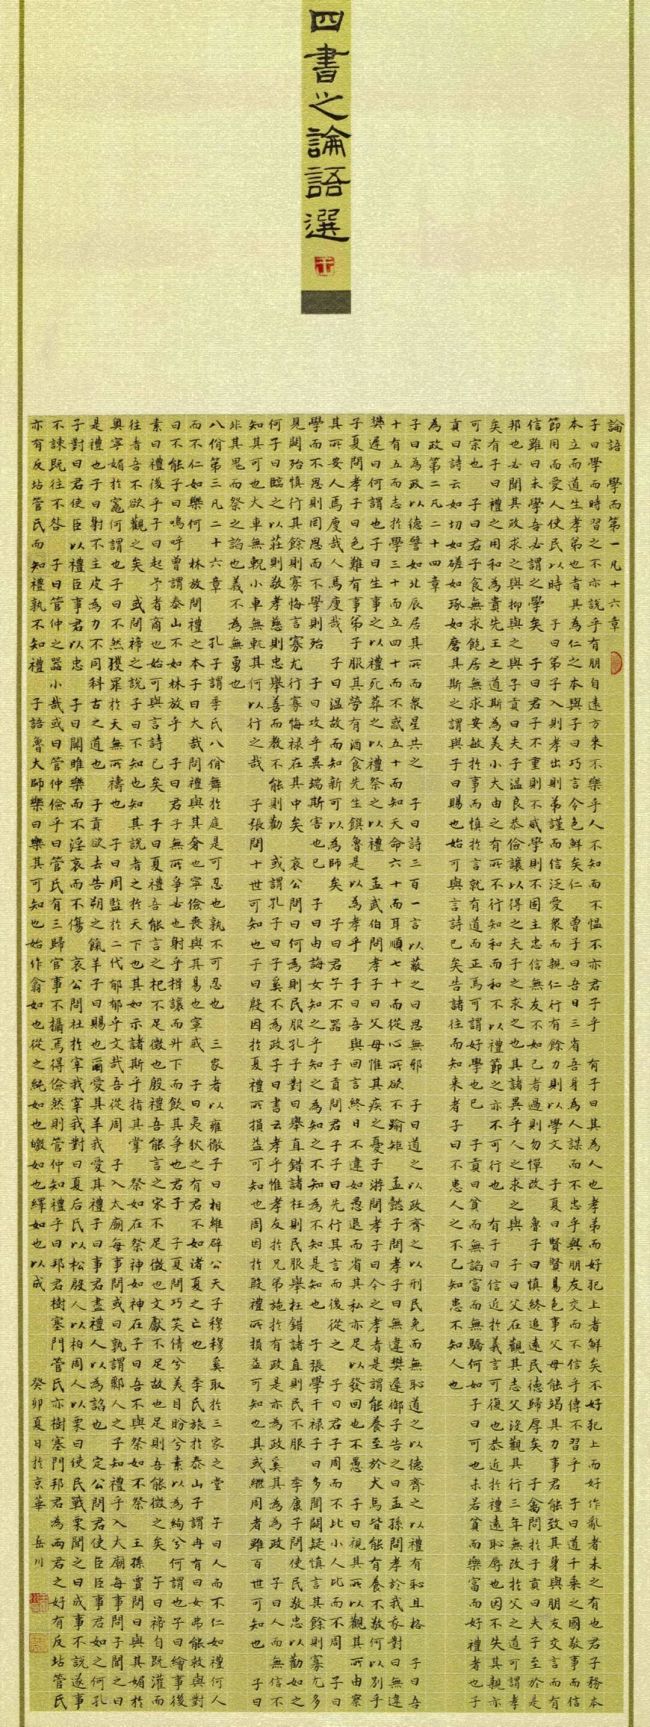 四書之論語選
論語 學而第一凡十六章
子曰學而時習之不亦說乎有朋自遠方來不樂乎人不知而不慍不亦君子乎 有子曰其為人也孝弟而好犯上者鮮矣不好犯上而好作亂者未之有也君子務本
本立而道生孝弟也者其為仁之本與子曰巧言令色鮮矣仁 曾子曰吾日三省吾身為人謀而不忠乎與朋友交而不信乎傳不習乎 子曰道千乘之國敬事而信
節用而愛人使民以時 子曰弟子入則孝出則弟謹而信泛愛衆而親仁行有餘力則以學文 子夏曰賢賢易色事父母能竭其力事君能致其身與朋友交言而有
信雖曰未學吾必謂之學矣 子曰君子不重則不威學則不固主忠信無友不如己者過則勿憚改 曾子曰慎終追遠民德歸厚矣 子禽問於子貢曰夫子至於是
邦也必聞其政求之與抑與之與子貢曰夫子溫良恭儉讓以得之夫子之求之也其諸異乎人之求之與 子曰父在觀其志父沒觀其行三年無改於父之道可謂孝
矣有子曰禮之用和為貴先王之道斯為美小大由之有所不行知和而和不以禮節之亦不可行也 有子曰信近於義言可復也恭近於禮遠恥辱也因不失其親亦
可宗也 子曰君子食無求飽居無求安敏於事而慎於言就有道而正焉可謂好學也已 子貢曰貧而無諂富而無驕何如子曰可也未若貧而樂富而好禮者也子
貢曰詩云如切如磋如琢如磨其斯之謂與子曰賜也始可與言詩已矣告諸往而知來者子曰不患人之不己知患不知人也
為政第二凡二十四章
子曰為政以德譬如北辰居其所而衆星共之 子曰詩三百一言以蔽之曰思無邪 子曰道之以政齊之以刑民免而無恥道之以德齊之以禮有恥且格 子曰吾
十有五而志於學三十而立四十而不惑五十而知天命六十而耳順七十而從心所欲不踰矩 孟懿子問孝子曰無違樊遲御子告之曰孟孫問孝於我我對曰無違
樊遲曰何謂也子曰生事之以禮死葬之以禮祭之以禮 孟武伯問孝子曰父母惟其疾之憂子游問孝子曰今之孝者是謂能養至於犬馬皆能有養不敬何以別乎
子夏問孝子曰色難有事弟子服其勞有酒食先生饌曾是以為孝乎 子曰吾與回言終日不違如愚退而省其私亦足以發回也不愚 子曰視其所以觀其所由察
其所安人焉廋哉人焉廋哉 子曰溫故而知新可以為師矣 子曰君子不器 子貢問君子子曰先行其言而後從之 子曰君子周而不比小人比而不周 子曰
學而不思則罔思而不學則殆 子曰攻乎異端斯害也已 子曰由誨女知之乎知之為知之不知為不知是知也 子張學干祿子曰多聞闕疑慎言其餘則寡尤多
見闕殆慎行其餘則寡悔言寡尤行寡悔祿在其中矣 哀公問曰何為則民服孔子對曰舉直錯諸枉則民服舉枉錯諸直則民不服 季康子問使民敬忠以勸如之
何子曰臨之以莊則敬孝慈則忠舉善而教不能則勸 或謂孔子曰子奚不為政子曰書云孝乎惟孝友於兄弟施於有政是亦為政奚其為為政 子曰人而無信不
知其可也大車無輗小車無軏其何以行之哉 子張問十世可知也子曰殷因於夏禮所損益可知也周因於殷禮所損益可知也其或繼周者雖百世可知也 子曰
非其鬼而祭之諂也義不為無勇也
八佾第三凡二十六章 孔子謂季氏八佾舞於庭是可忍也孰不可忍也 三家者以雍徹子曰相維辟公天子穆穆奚取於三家之堂 子曰人而不仁如禮何人
而不仁如樂何 林放問禮之本子曰大哉問禮與其奢也寧儉喪與其易也寧戚 子曰夷狄之有君不如諸夏之亡也 季氏旅於泰山子謂冉有曰女弗能救與對
曰不能子曰嗚呼曾謂泰山不如林放乎 子曰君子無所爭必也射乎揖讓而升下而飲其爭也君子 子夏問巧笑倩兮美目盼兮素以為絢兮何謂也子曰繪事後
素曰禮後乎子曰起予者商也始可與言詩已矣 子曰夏禮吾能言之杞不足徵也殷禮吾能言之宋不足徵也文獻不足故也足則吾能徵之矣 子曰禘自既灌而
往者吾不欲觀之矣 或問禘之說子曰不知也知其說者之於天下也其如示諸斯乎指其掌 祭如在祭神如神在子曰吾不與祭如不祭 王孫賈問曰與其媚於
奧寧媚於竈何謂也子曰不然獲罪於天無所禱也 子曰周監於二代郁郁乎文哉吾從周 子入太廟每事問或曰孰謂鄹人之子知禮乎入大廟每事問子聞之曰
是禮也子曰射不主皮為力不同科古之道也 子貢欲去告朔之餼羊子曰賜也爾愛其羊我愛其禮子曰事君盡禮人以為諂也 定公問君使臣臣事君如之何孔
子對曰君使臣以禮臣事君以忠 子曰關雎樂而不淫哀而不傷 哀公問社於宰我宰我對曰夏后氏以松殷人以柏周人以栗曰使民戰栗子聞之曰成事不說遂事
不諫既往不咎 子曰管仲之器小哉或曰管仲儉乎曰管氏有三歸官事不攝焉得儉然則管仲知禮乎曰邦君樹塞門管氏亦樹塞門邦君為兩君之好有反坫管氏
亦有反坫管氏而知禮孰不知禮 子語魯大師樂曰樂其可知也始作翕如也從之純如也皦如也繹如也以成
癸卯夏日於京華 岳川